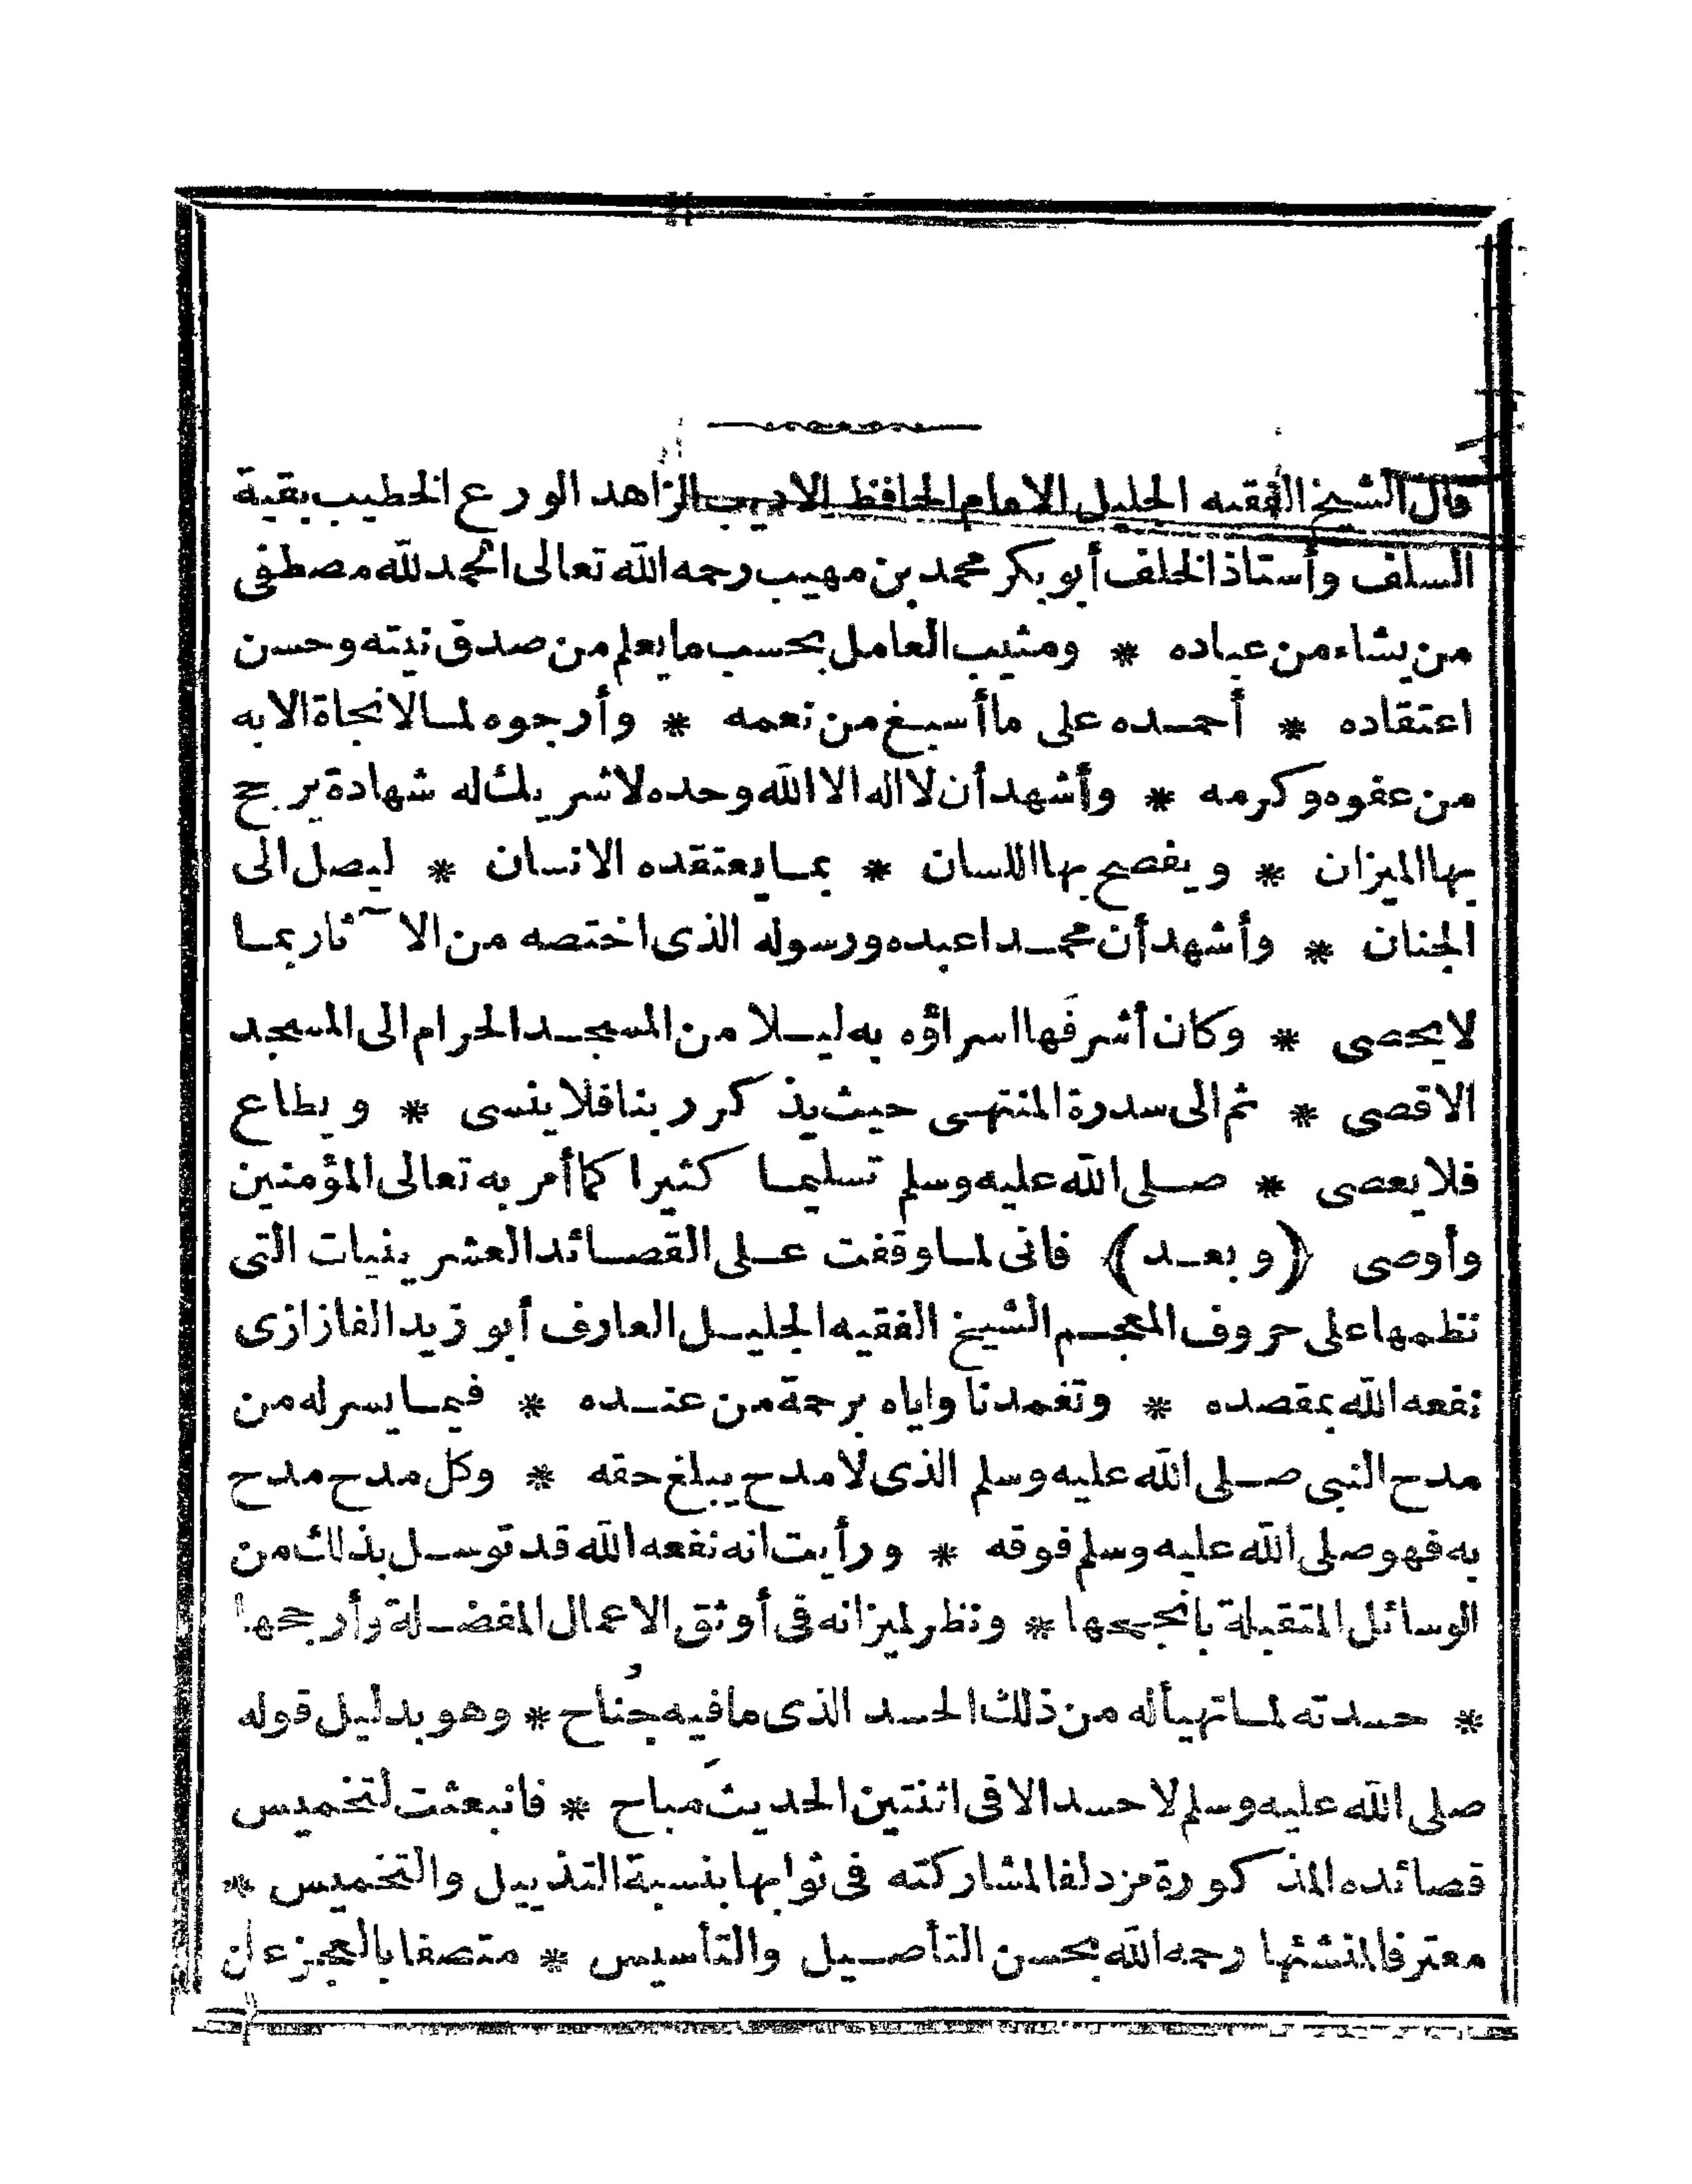 قال الشيخ الفقيه الجليل الامام الحافظ الاديب الزاهد الورع الخطيب بقية
السلف وأستاذ الخلف أبو بكر محمد بن مهيب رحمه الله تعالى الحمد لله مصطفى
من يشاء من عباده * ومثيب العامل بحسب ما يعلم من صدق نيته وحسن
اعتقاده * أحمده على ما أسبغ من نعمه * وأرجوه لما لا نجاة الا به
من عفوه وكرمه * وأشهد أن لا اله الا الله وحده لا شريك له شهادة يرجح
بها الميزان * ويفصح بها اللسان * بما يعتقده الانسان * ليصل الى
الجنان * وأشهد أن محمدا عبده ورسوله الذى اختصه من الآثار بما
لا يحصى * وكان أشرفها اسراؤه به ليلا من المسجد الحرام الى المسجد
الاقصى * ثم الى سدرة المنتهى حيث يذكر ربنا فلا ينسى * ويطاع
فلا يعصى * صلى الله عليه وسلم تسليما كثيرا كما أمر به تعالى المؤمنين
وأوصى (وبعد) فانى لما وقفت على القصائد العشرينيات التى
نظمها على حروف المعجم الشيخ الفقيه الجليل العارف أبو زيد الفازازى
نفعه الله بمقصده * وتغمدنا واياه برحمة من عنده * فيما يسر له من
مدح النبى صلى الله عليه وسلم الذى لا مدح يبلغ حقه * وكل مدح مدح
به فهو صلى الله عليه وسلم فوقه * ورأيت انه نفعه الله قد توسل بذلك من
الوسائل المتقبلة بانجحها * ونظر لميزانه فى أوثق الاعمال المفضلة وأرجحها
* حسدته لما تهيأ له من ذلك الحسد الذى ما فيه جُناح * وهو بدليل قوله
صلى الله عليه وسلم لا حسد الا فى اثنتين الحديثَ مباح * فانبعثت لتخميس
قصائده المذكورة مزدلفا لمشاركته فى ثوابها بنسبة التذييل والتخميس *
معترفا لمنشئها رحمه الله بحسن التأصيل والتأسيس * متصفا بالعجز عن